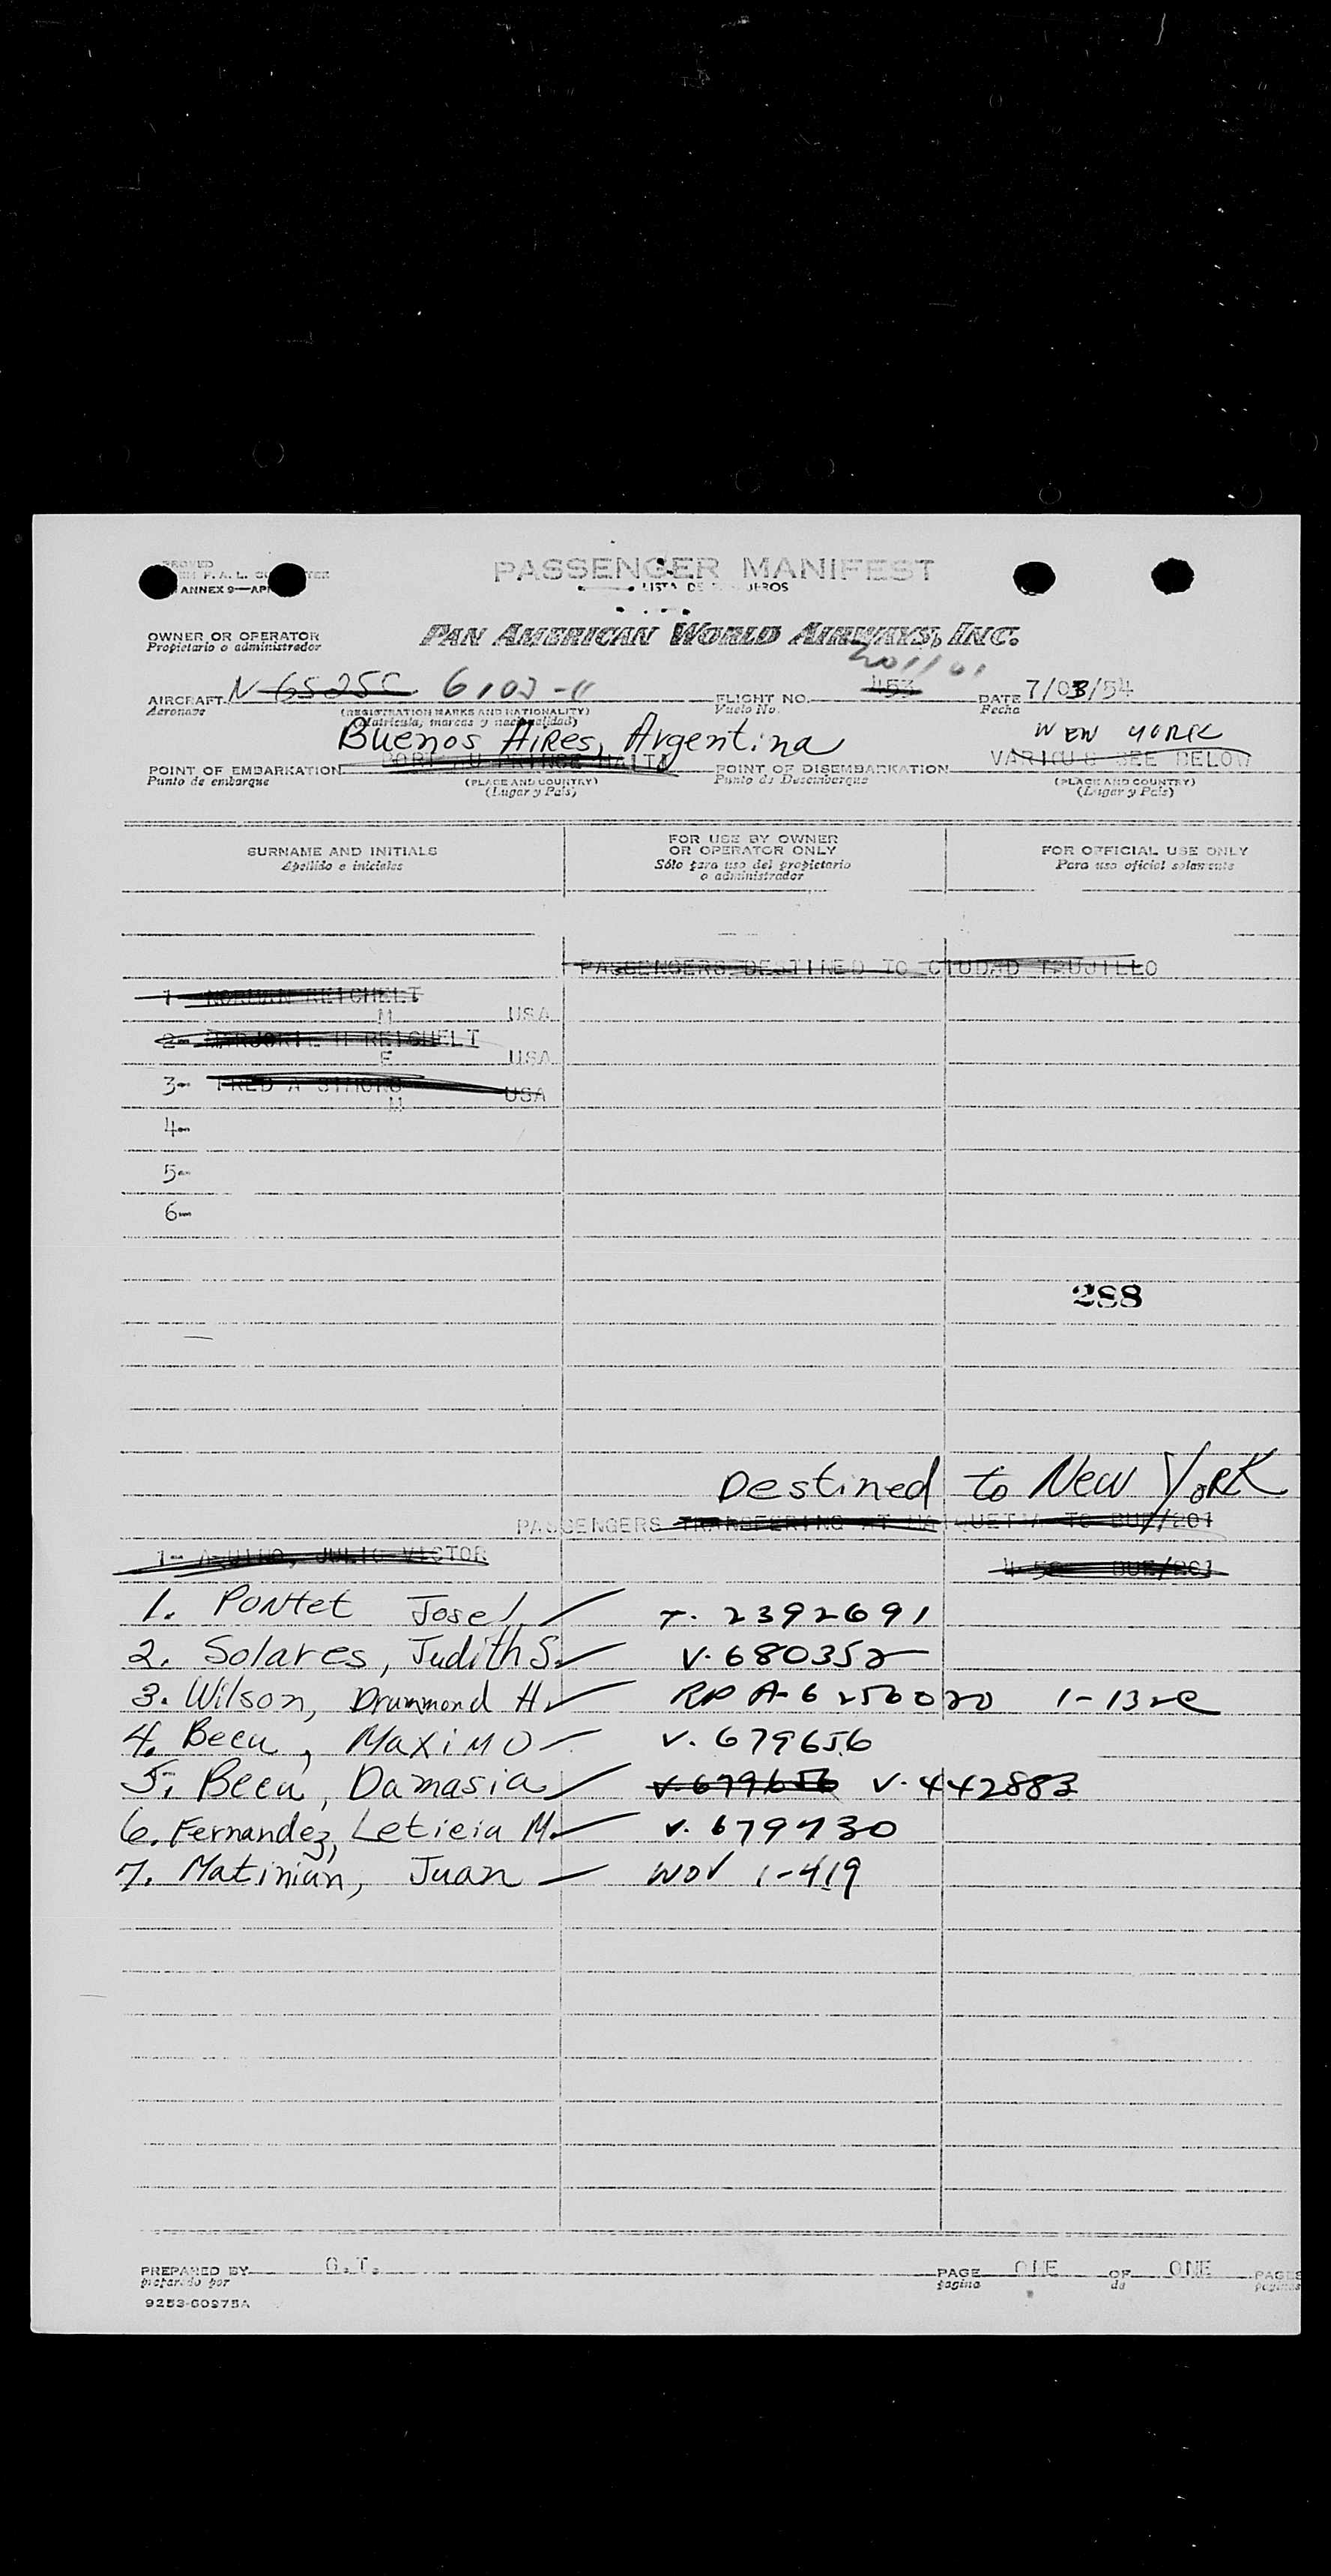 PASSENGER MANIFEST
ANNEX 9—
OWNER OR OPERATOR
Propietario o administrador
PAN AMERICAN WORLD AIRWAYS, INC.
AIRCRAFT N-6525C
Aeronave
(REGISTRATION MARKS AND NATIONALITY)
(Matrícula, marcas y nacionalidad)
FLIGHT NO. 453
Vuelo No.
DATE 7/03/54
Fecha
Buenos Aires, Argentina
NEW YORK
POINT OF EMBARKATION
Punto de embarque
(PLACE AND COUNTRY)
(Lugar y País)
POINT OF DISEMBARKATION VARIOUS SEE BELOW
Punto de Desembarque
(PLACE AND COUNTRY)
(Lugar y País)
SURNAME AND INITIALS
Apellido e iniciales
FOR USE BY OWNER
OR OPERATOR ONLY
Sólo para uso del propietario
o administrador
FOR OFFICIAL USE ONLY
Para uso oficial solamente
PASSENGERS DESTINED TO CIUDAD TRUJILLO
1- NORMAN REICHELT
M USA
2- MARJORIE H REICHELT
F USA
3- FRED A
M USA
4-
5-
6-
288
Destined to New York
PASSENGERS TRANSFERING AT MAIQUETIA TO BUE/201
1- AQUINO, JULIO VICTOR BUE/201
1. Pontet Jose T. 2392691
2. Solares, Judith S. V. 680352
3. Wilson, Drummond H. RP A-6256020
4. Becu, Maximo V. 679656
5. Becu, Damasia V. 679656 V. 442883
6. Fernandez, Leticia M. V. 679730
7. Matinian, Juan WOV 1-419
PREPARED BY G.T.
preparado por
PAGE ONE OF ONE PAGES
página de páginas
9253-60975A